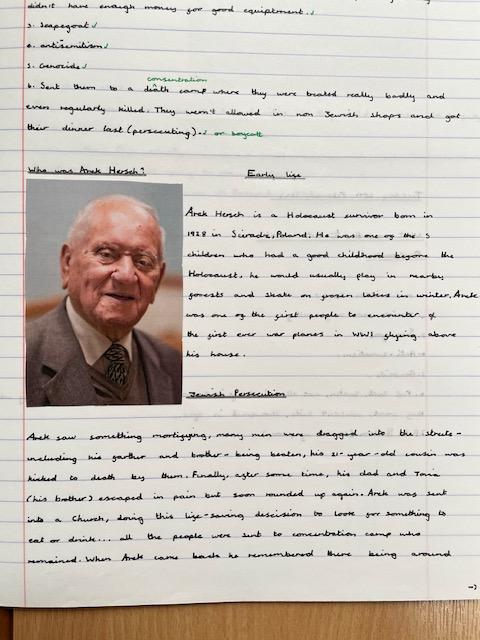 didn't have enough money for good equiptment. ✓
3. Scapegoat ✓
4. antisemitism ✓
5. Genocide ✓
consentration
6. Sent them to a death camp where they were treated really badly and
even regularly killed. They weren't allowed in non Jewish shops and got
their dinner last (persecuting). ✓ or boycott
Who was Arek Hersh?
Early life
Arek Hersch is a Holocaust survivor born in
1928 in Sieradz, Poland. He was one of the 5
children who had a good childhood before the
Holocaust, he would usually play in nearby
forests and skate on frozen lakes in winter. Arek
was one of the first people to encounter
the first ever war planes in WW1 flying above
his house.
Jewish Persecution
Arek saw something mortifying, many men were dragged into the streets -
including his farther and brother - being beaten, his 21-year-old cousin was
kicked to death by them. Finally, after some time, his dad and
(his brother) escaped in pain but soon rounded up again. Arek was sent
into a Church, doing this life-saving descision to look for something to
eat or drink... all the people were sent to concentration camp who
remained. When Arek came back he remembered there being around
→